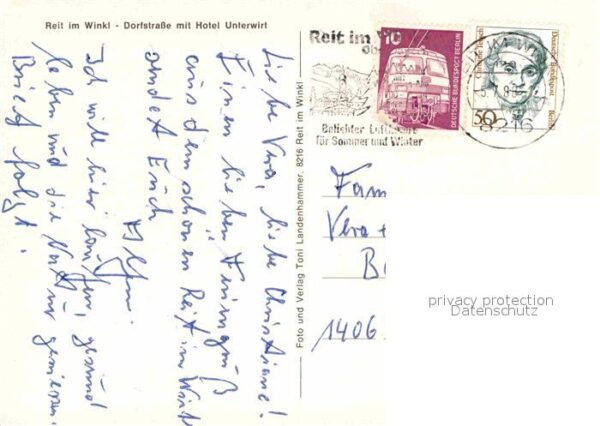 Reit im Winkl - Dorfstraße mit Hotel Unterwirt
Liebe Vera, liebe Christiane!
Einen lieben Feriengruß
aus dem schönen Reit im Winkl
sendet Euch
Ich will hier laufen, gesund
leben und die Natur geniessen.
Brief folgt.
Foto und Verlag Toni Landenhammer, 8216 Reit im Winkl
Reit im
Beliebter Luftkurort
für Sommer und Winter
10
DEUTSCHE BUNDESPOST BERLIN
50
Deutsche Bundespost
Berlin
8216
Fam
Vera +
B
1406
privacy protection
Datenschutz